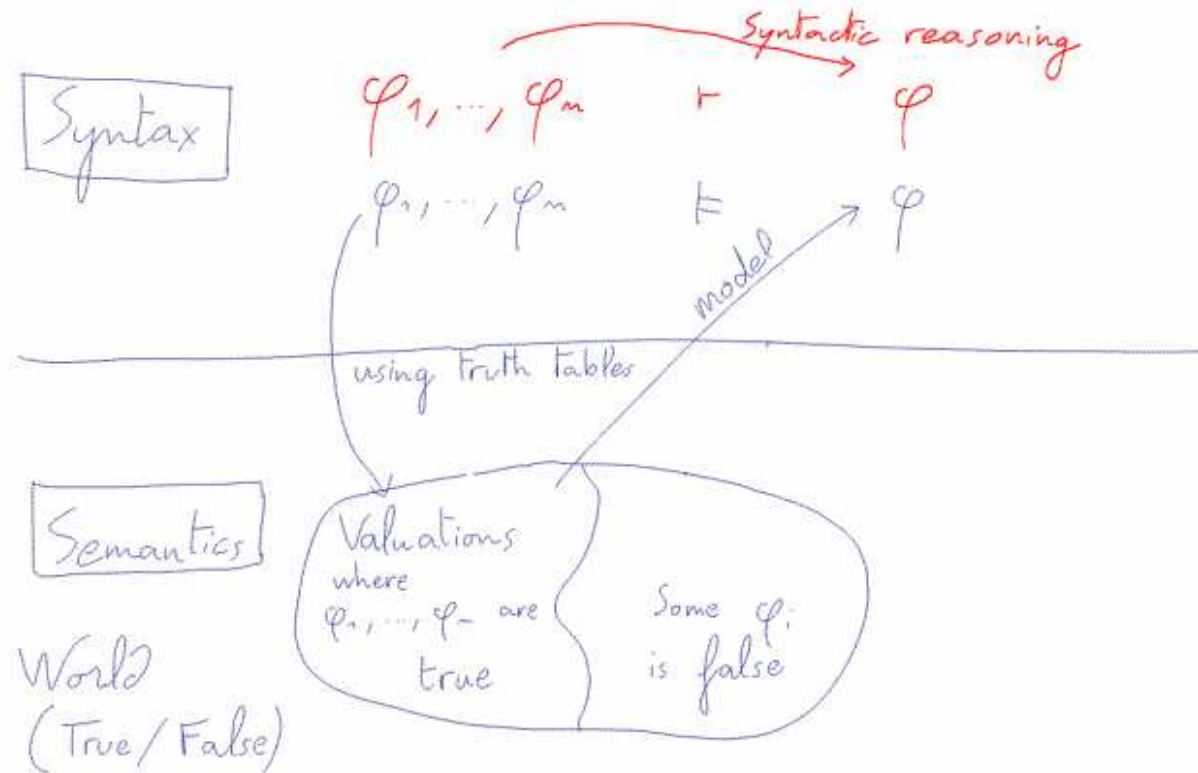 Syntactic reasoning
Syntax
φ1, ..., φn ⊢ φ
φ1, ..., φn ⊨ φ
model
using truth tables
Semantics
Valuations
where
φ1, ..., φn are
true
Some φi
is false
World
(True/False)